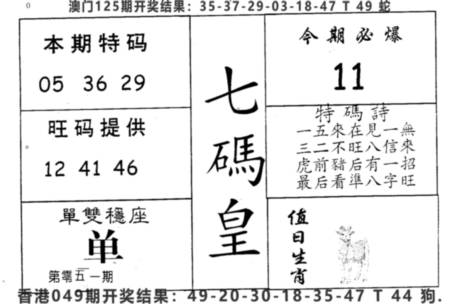 澳门125期开奖结果：35-37-29-03-18-47 T 49 蛇
本期特码
05 36 29
旺码提供
12 41 46
單雙穩座
单
第零五一期
七碼皇
今期必爆
11
特碼詩
一五來在見一無
三二不旺八信來
虎前豬后有一招
最后看準八字旺
值日生肖
香港049期开奖结果：49-20-30-18-35-47 T 44 狗.